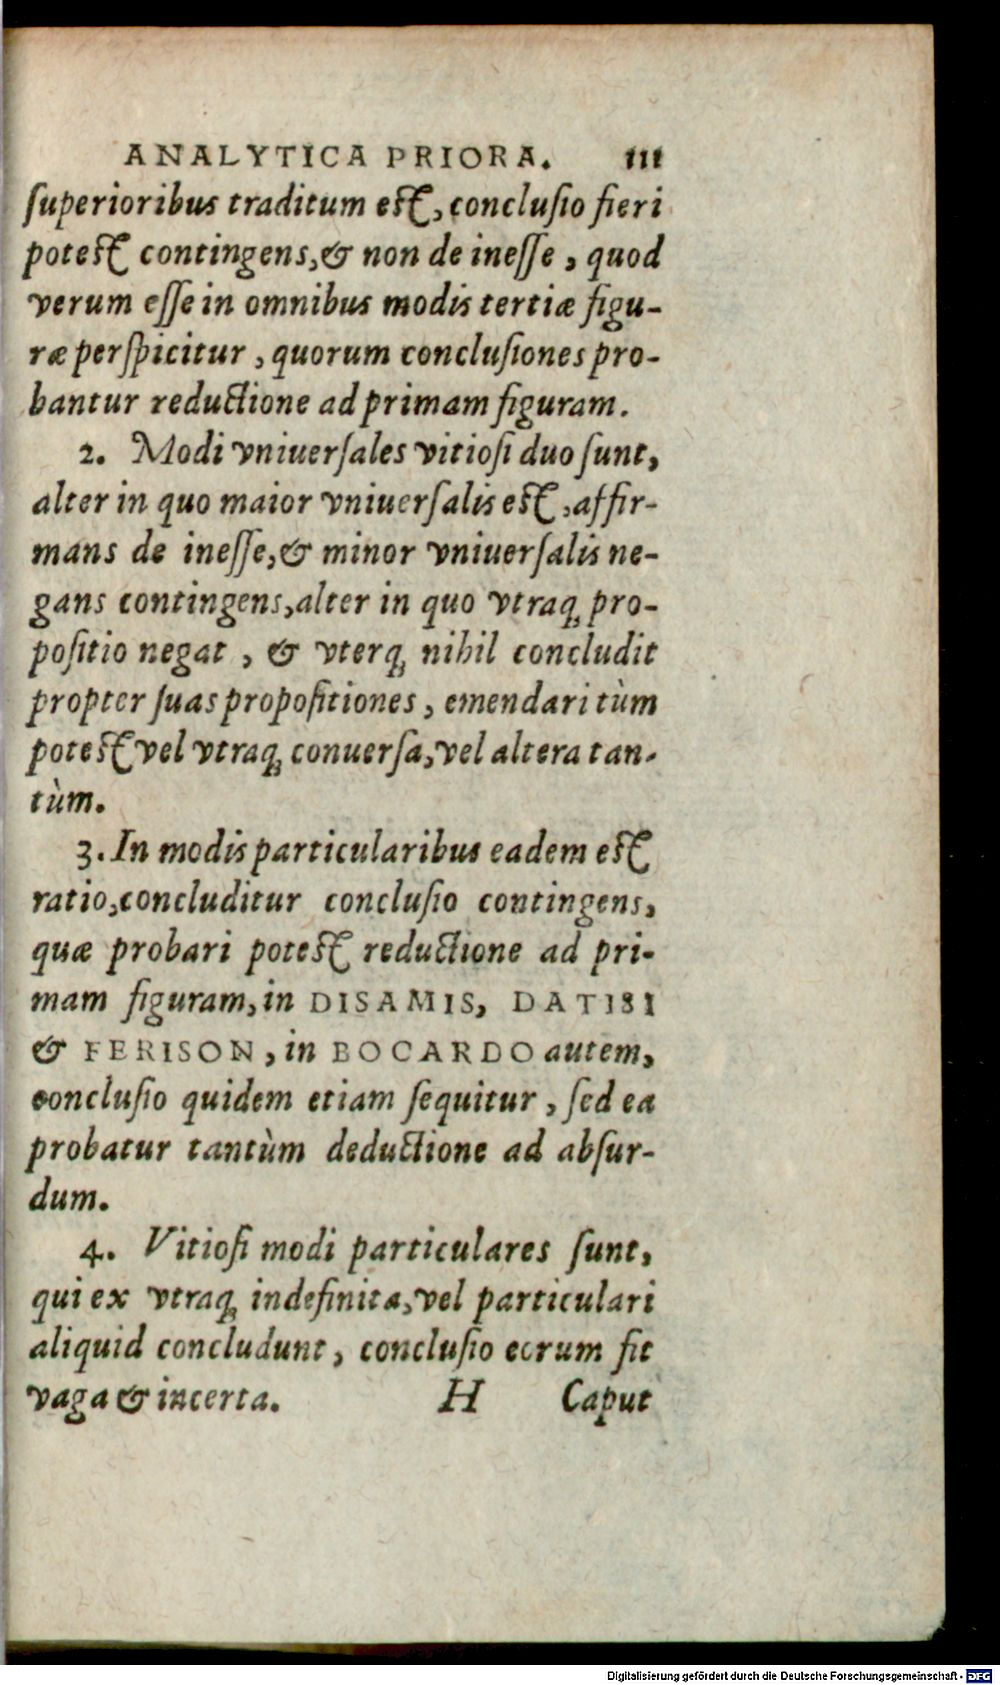 ANALYTICA PRIORA. 111
ſuperioribus traditum eſt, concluſio fieri
poteſt contingens, & non de ineſſe, quod
verum eſſe in omnibus modis tertiæ figu-
ræ perſpicitur, quorum concluſiones pro-
bantur reductione ad primam figuram.
2. Modi vniuerſales vitioſi duo ſunt,
alter in quo maior vniuerſalis eſt, affir-
mans de ineſſe, & minor vniuerſalis ne-
gans contingens, alter in quo vtraq; pro-
poſitio negat, & vterq; nihil concludit
propter ſuas propoſitiones, emendari tùm
poteſt vel vtraq; conuerſa, vel altera tan-
tùm.
3. In modis particularibus eadem eſt
ratio, concluditur concluſio contingens,
quæ probari poteſt reductione ad pri-
mam figuram, in DISAMIS, DATISI
& FERISON, in BOCARDO autem,
concluſio quidem etiam ſequitur, ſed ea
probatur tantùm deductione ad abſur-
dum.
4. Vitioſi modi particulares ſunt,
qui ex vtraq; indefinita, vel particulari
aliquid concludunt, concluſio eorum fit
vaga & incerta. H Caput
Digitalisierung gefördert durch die Deutsche Forschungsgemeinschaft - DFG